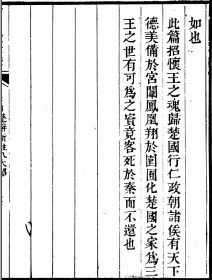 如也
此篇招懷王之魂歸楚國行仁政朝諸侯有天下
德美備於宮闈鳳凰翔於囿囿化楚國之家為三
王之世有可為之資竟客死於秦而不還也